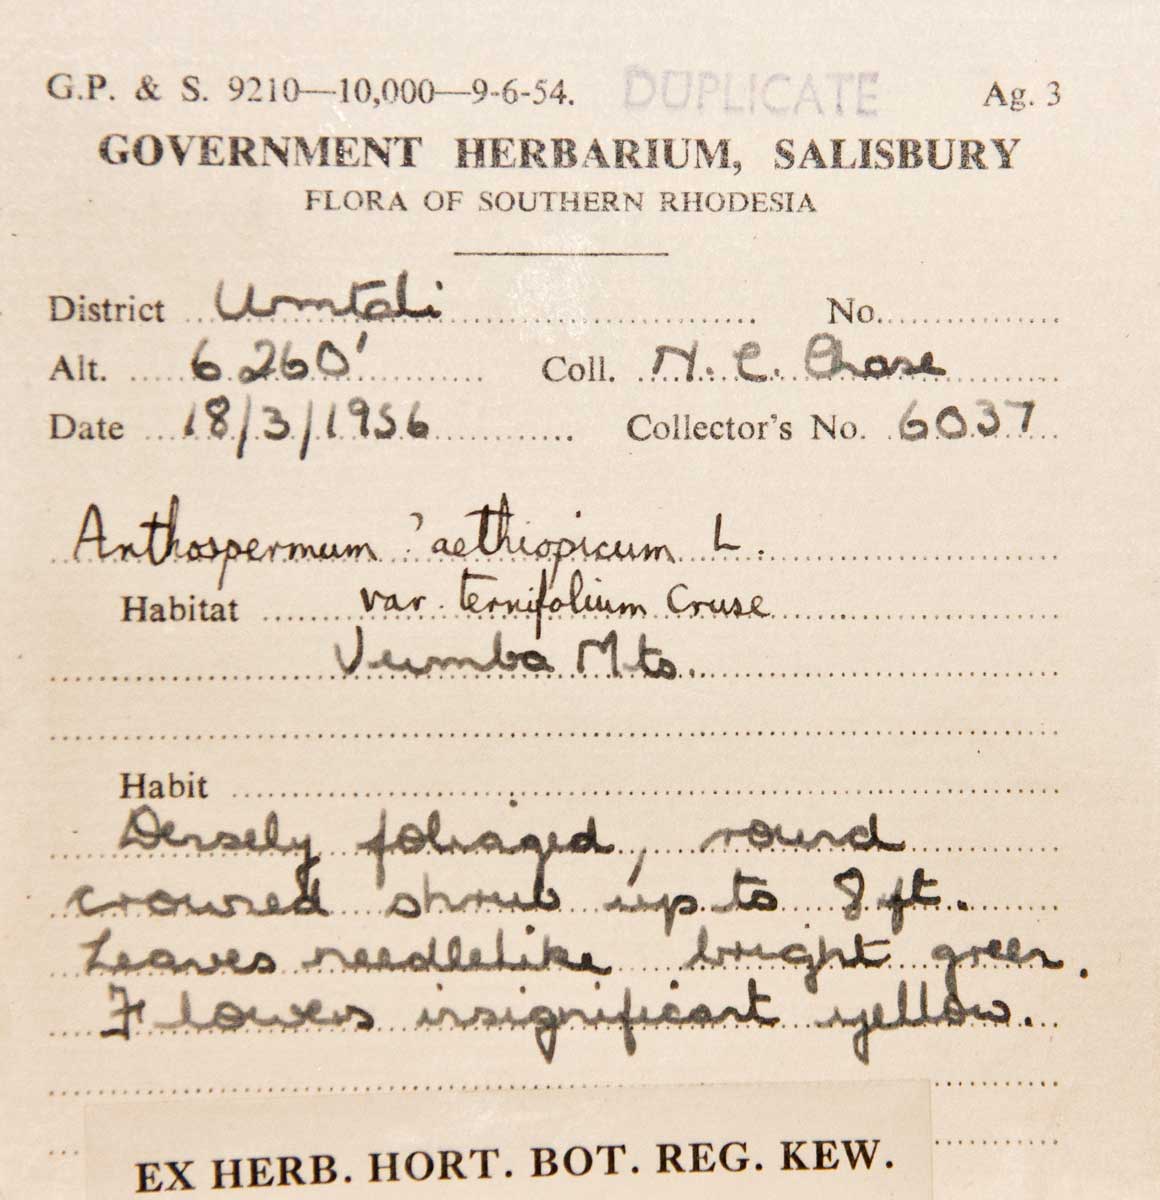 G.P. & S. 9210—10,000—9-6-54. DUPLICATE Ag. 3
GOVERNMENT HERBARIUM, SALISBURY
FLORA OF SOUTHERN RHODESIA
District Umtali No.
Alt. 6260' Coll. N. C. Chase
Date 18/3/1956 Collector's No. 6037
Anthospermum aethiopicum L.
Habitat var. ternifolium Cruse
Vumba Mts.
Habit
Densely foliaged, round
crowned shrub up to 8 ft.
Leaves needlelike bright green.
Flowers insignificant yellow.
EX HERB. HORT. BOT. REG. KEW.